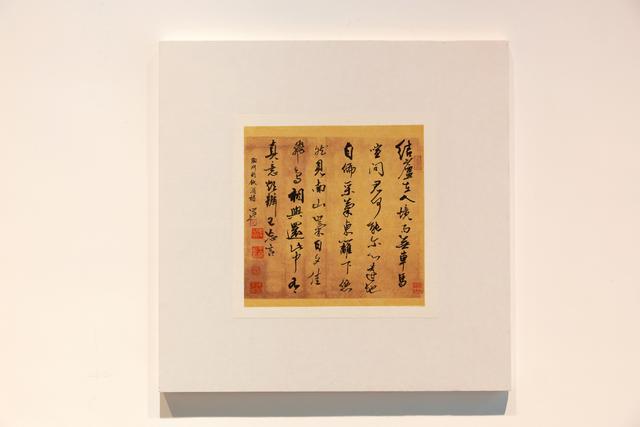 結廬在人境而無車馬
喧問君何能尔心遠地
自偏采菊東籬下悠
然見南山山氣日夕佳
飛鳥相與還此中有
真意欲辨已忘言